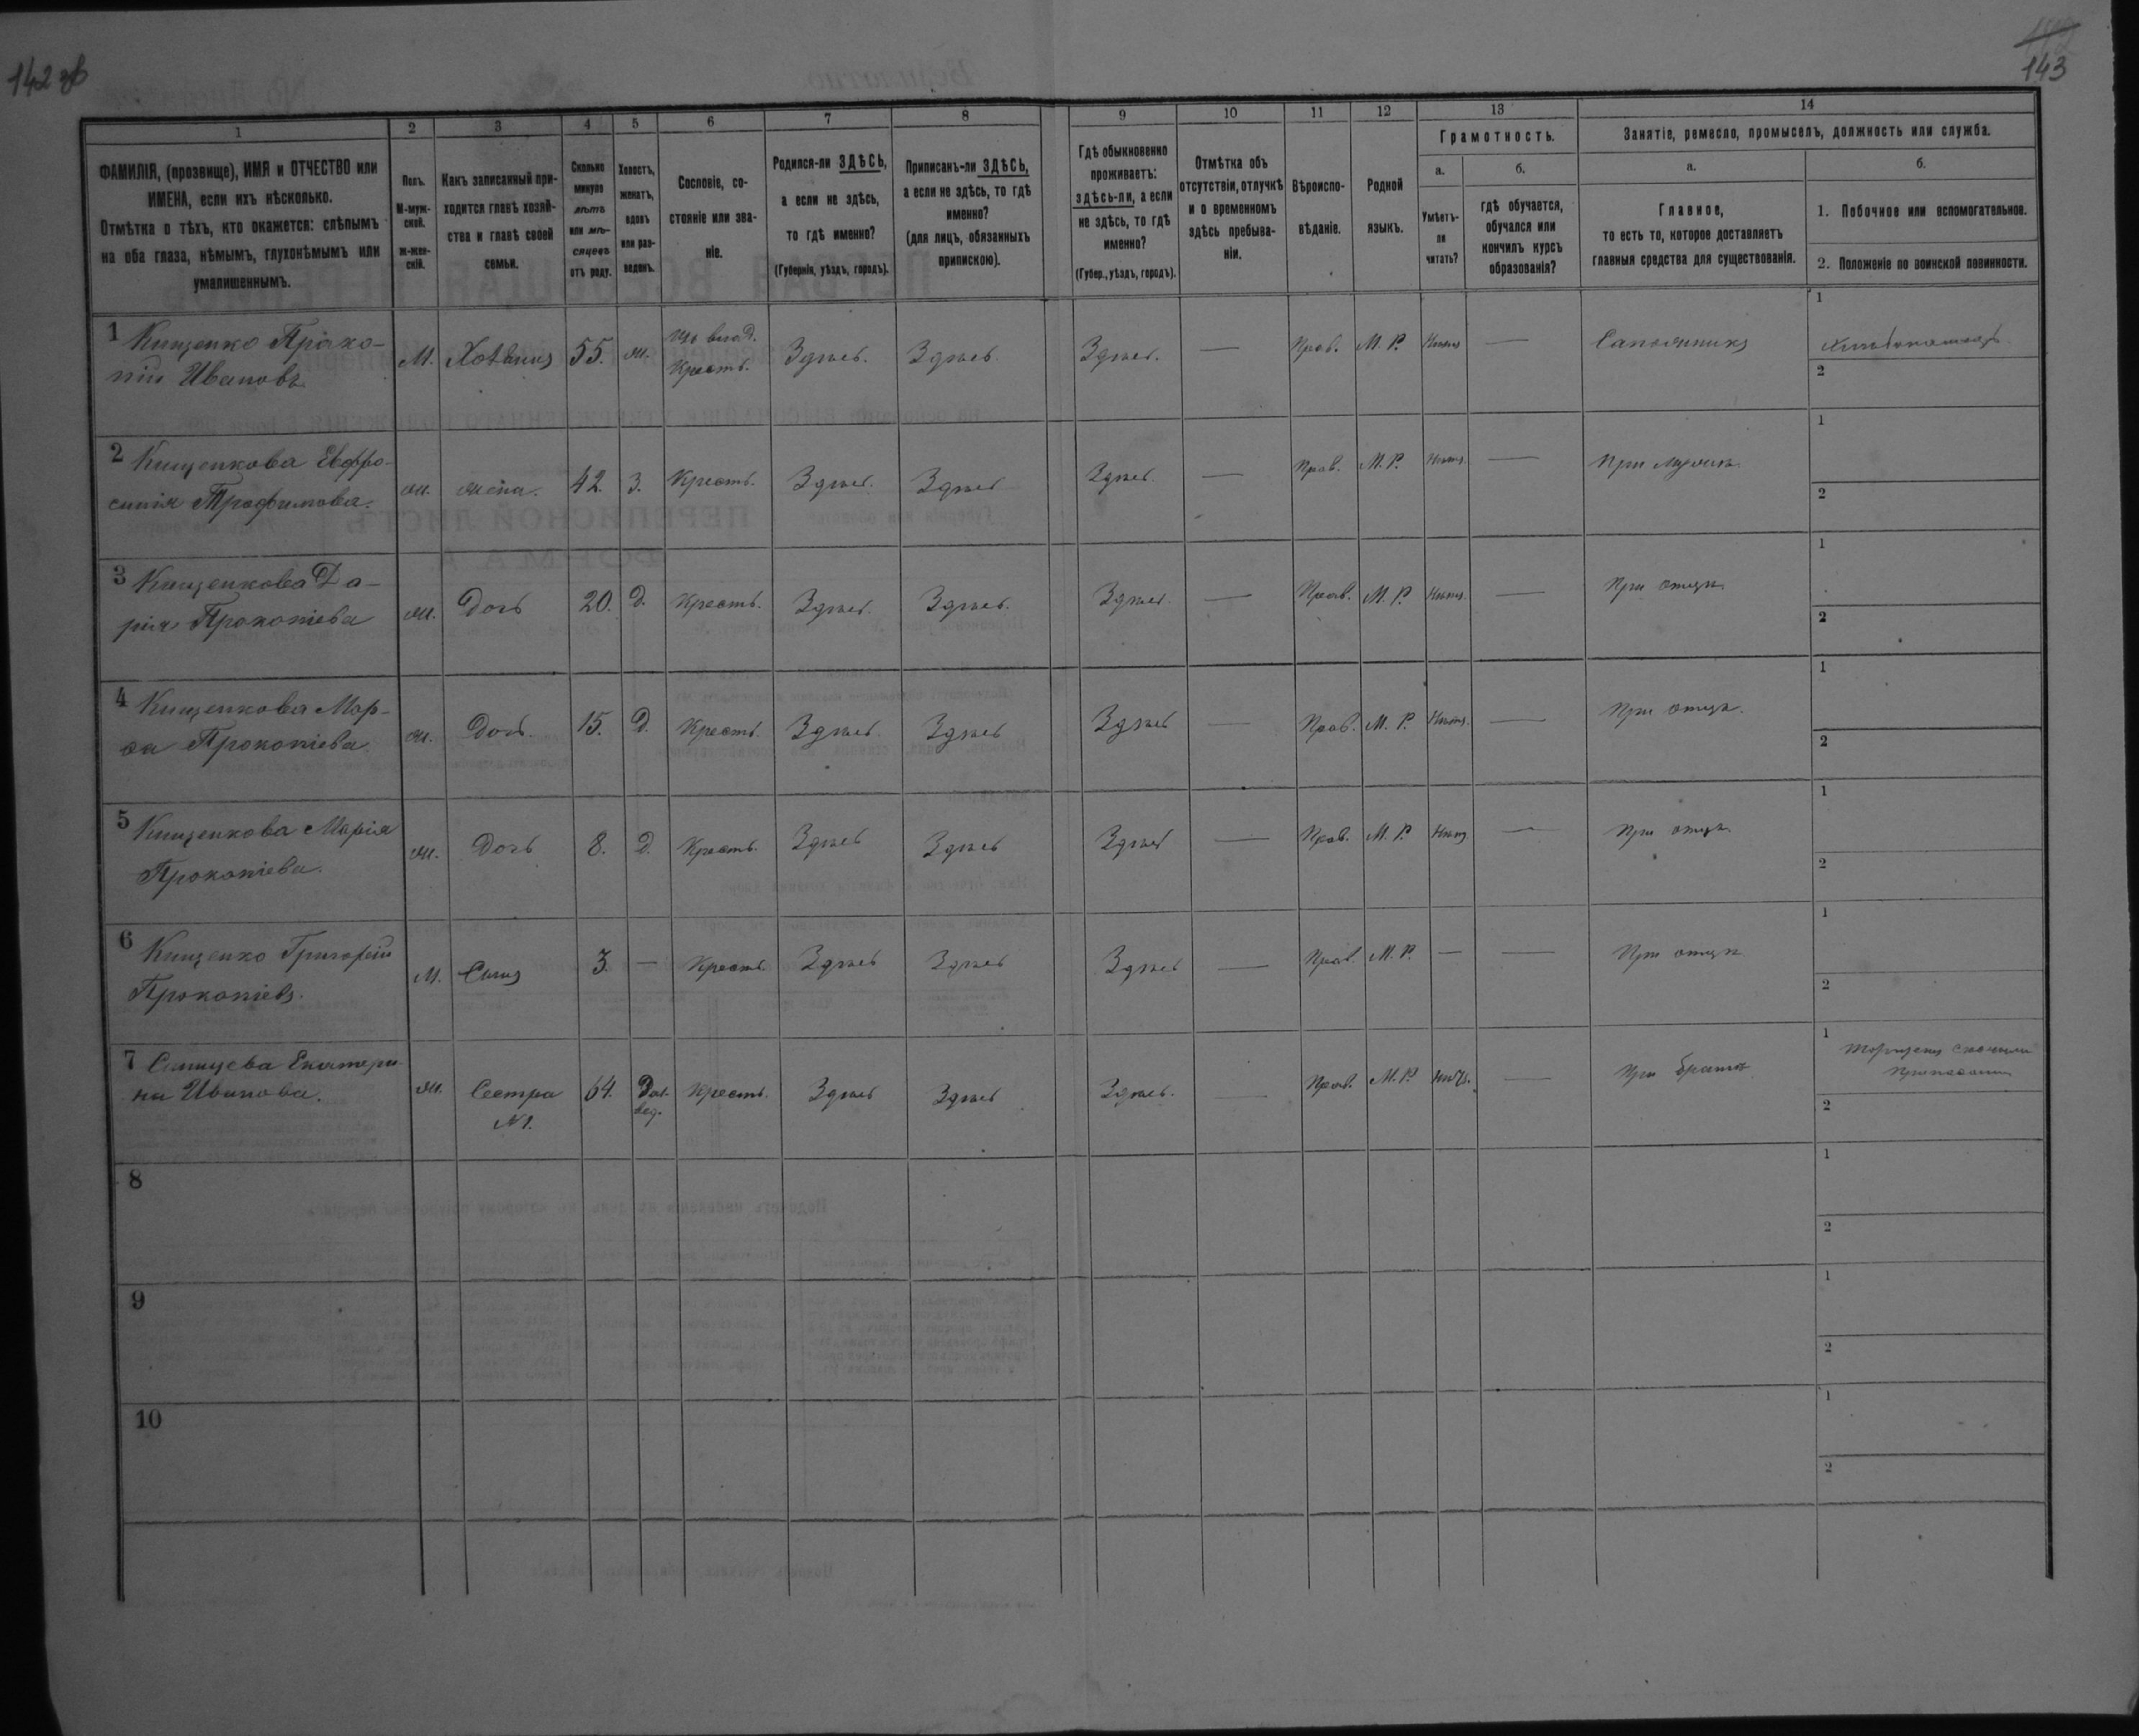 142 об
143
1
2
3
4
5
6
7
8
9
10
11
12
13
14
ФАМИЛІЯ, (прозвище), ИМЯ и ОТЧЕСТВО или
ИМЕНА, если ихъ нѣсколько.
Отмѣтка о тѣхъ, кто окажется: слѣпымъ
на оба глаза, нѣмымъ, глухонѣмымъ или
умалишеннымъ.
Полъ.
М-муж-
ской.
Ж-жен-
скій.
Какъ записанный при-
ходится главѣ хозяй-
ства и главѣ своей
семьи.
Сколько
минуло
лѣтъ
или мѣ-
сяцевъ
отъ роду.
Холостъ,
женатъ,
вдовъ
или раз-
веденъ.
Сословіе, со-
стояніе или зва-
ніе.
Родился-ли ЗДѢСЬ,
а если не здѣсь,
то гдѣ именно?
(Губернія, уѣздъ, городъ).
Приписанъ-ли ЗДѢСЬ,
а если не здѣсь, то гдѣ
именно?
(для лицъ, обязанныхъ
припискою).
Гдѣ обыкновенно
проживаетъ:
здѣсь-ли, а если
не здѣсь, то гдѣ
именно?
(Губер., уѣздъ, городъ).
Отмѣтка объ
отсутствіи, отлучкѣ
и о временномъ
здѣсь пребыва-
ніи.
Вѣроиспо-
вѣданіе.
Родной
языкъ.
Грамотность.
а.
Умѣетъ-
ли
читать?
б.
гдѣ обучается,
обучался или
кончилъ курсъ
образованія?
Занятіе, ремесло, промыселъ, должность или служба.
а.
Главное,
то есть то, которое доставляетъ
главныя средства для существованія.
б.
1. Побочное или вспомогательное.
2. Положеніе по воинской повинности.
1 Кищенко Проко-
пій Ивановъ
М. Хозяинъ 55. ж. Крест. Здѣсь. Здѣсь Здѣсь. — Прав. М. Р. Нѣтъ — Сапожникъ
1 Хлѣбопашецъ.
2
2 Кищенкова Евфро-
синія Трофимова.
ж. жена. 42. З. Крест. Здѣсь. Здѣсь Здѣсь. — Прав. М. Р. Нѣтъ. — При мужѣ
1
2
3 Кищенкова Да-
рія Прокопіева
ж. Дочь 20. Д. Крест. Здѣсь. Здѣсь. Здѣсь. — Прав. М. Р. Нѣтъ. — При отцѣ
1
2
4 Кищенкова Мар-
ѳа Прокопіева
ж. Дочь. 15. Д. Крест. Здѣсь. Здѣсь Здѣсь — Прав. М. Р. Нѣтъ. — При отцѣ.
1
2
5 Кищенкова Марія
Прокопіева.
ж. Дочь 8. Д. Крест. Здѣсь Здѣсь Здѣсь — Прав. М. Р. Нѣтъ — При отцѣ.
1
2
6 Кищенко Григорій
Прокопіевъ.
М. Сынъ 3. — Крест. Здѣсь Здѣсь Здѣсь — Прав. М. Р. — — При отцѣ
1
2
7 Екатери-
на Иванова.
ж. Сестра 64. Крест. Здѣсь Здѣсь Здѣсь. — Прав. М. Р. Нѣтъ. — При братѣ
№1.
1
2
8
1
2
9
1
2
10
1
2